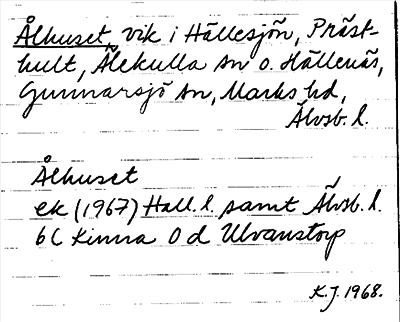 Ålhuset, vik i Hällesjön, Präst-
hult, Älekulla sn o. Hällenäs,
Gunnarsjö sn, Marks hd,
Älvsb. l.
Ålhuset
ek (1967) Hall. l. samt Älvsb. l.
6C Kinna 0d Ulvanstorp
K.J. 1968.